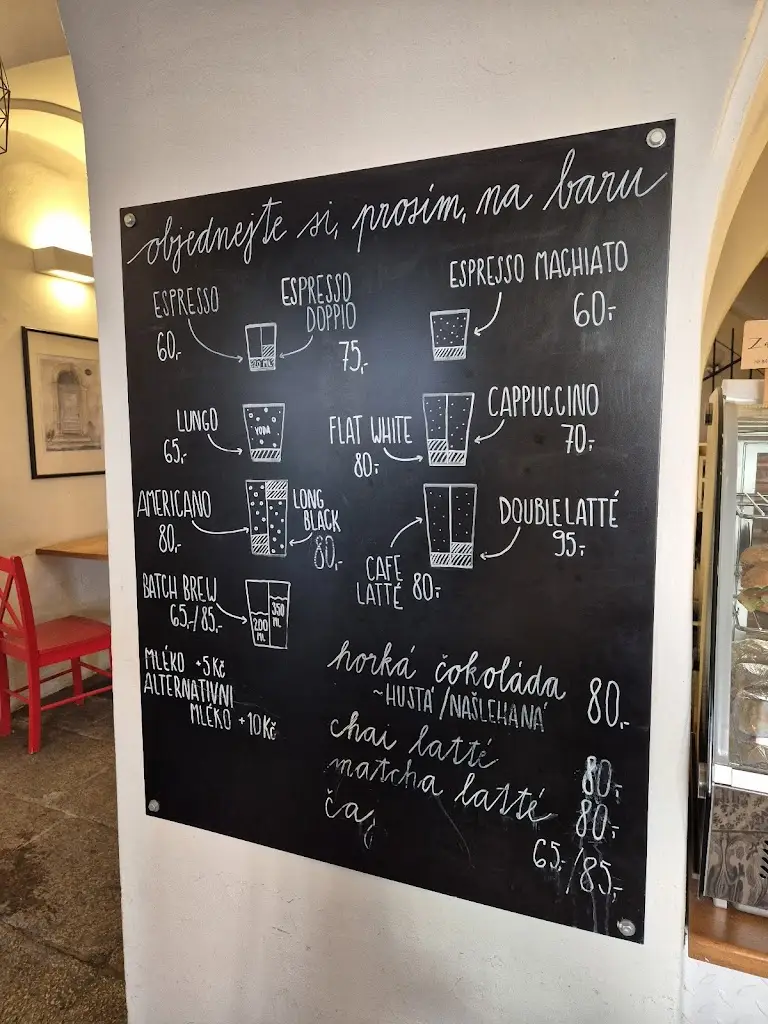 objednejte si, prosím, na baru
ESPRESSO
60,-
ESPRESSO
DOPPIO
75,-
ESPRESSO MACHIATO
60,-
LUNGO
65,-
VODA
FLAT WHITE
80,-
CAPPUCCINO
70,-
AMERICANO
80,-
LONG
BLACK
80,-
CAFE
LATTÉ 80,-
DOUBLE LATTÉ
95,-
BATCH BREW
65,-/85,-
200
ML
350
ML
MLÉKO +5 Kč
ALTERNATIVNI
MLÉKO +10 Kč
horká čokoláda 80,-
~HUSTÁ/NAŠLEHANÁ
chai latté 80,-
matcha latté 80,-
čaj 65,-/85,-